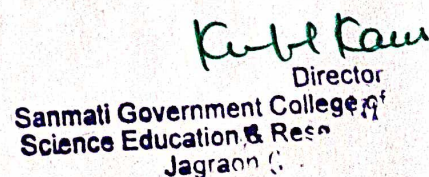 Director
Sanmati Government College of
Science Education & Res
Jagraon (